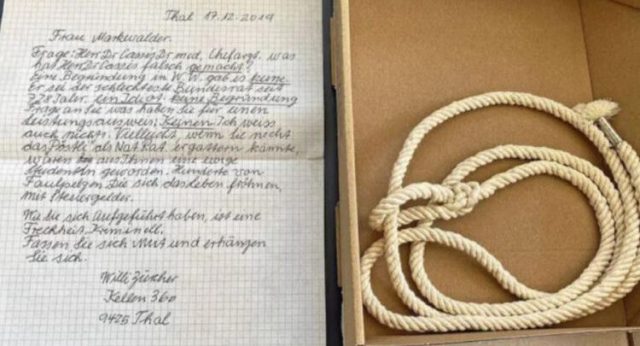 Thal 17.12.2019
Frau Markwalder.
Frage: Herr Dr Cassis Dr med, Chefarzt. was
hat Herr Dr Cassis falsch gemacht?
Eine Begründung in W.W. gab es keine
Er sei der schlechteste Bundesrat seit
Jahr. ein Idiot. keine Begründung
Frage an Sie was haben Sie für einen
leistungsausweis. Keinen. Ich weiss
auch nicht. Vielleicht wenn Sie nicht
das Pöstli als Nat Rat. könnte,
wären aus Ihnen eine ewige
Studentin geworden. Hunderte von
Faulpelzen Die sich das Leben fröhnen,
mit Steuergelder.
Wie Sie sich Aufgeführt haben, ist eine
Frechheit. Kriminell.
Fassen Sie sich Mut und erhängen
Sie sich.
Willi Zürcher
Kellen 360
9425 Thal